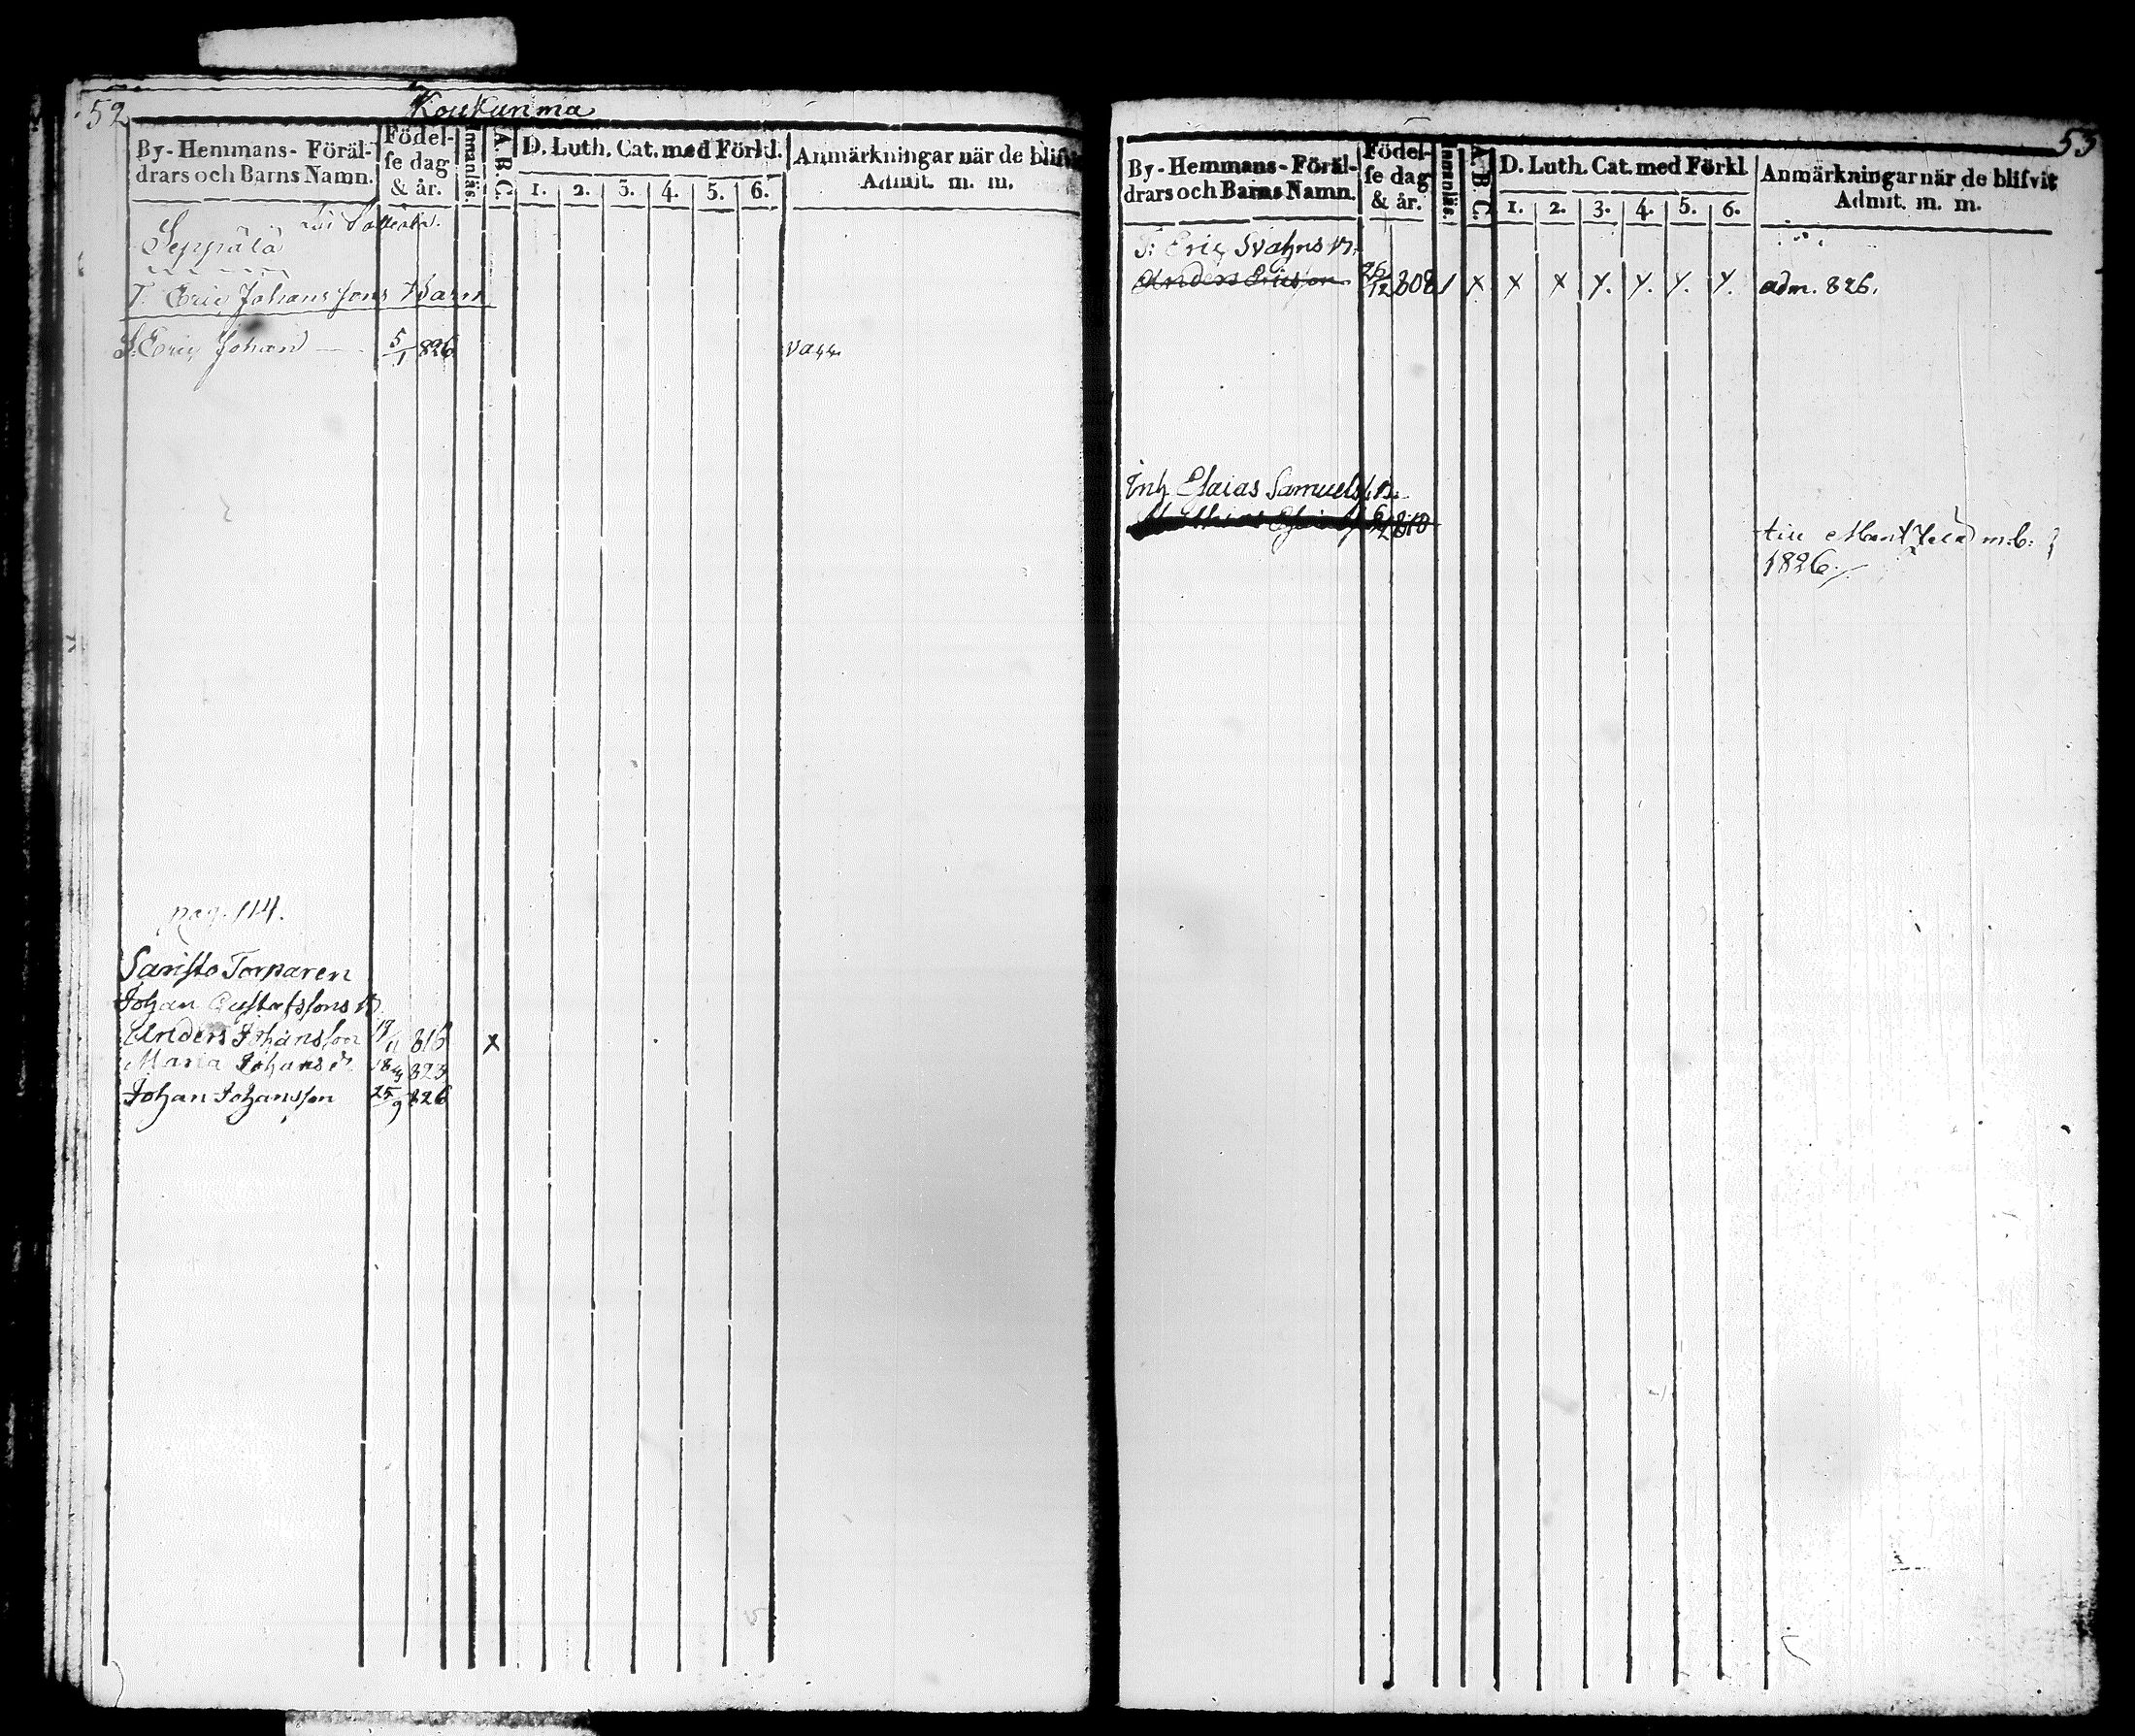 52
Koukunma
By-Hemmans-Föräl-
drars och Barns Namn.
Födel-
se dag
& år.
Innanläs.
A. B. C.
D. Luth. Cat. med Förkl.
1. 2. 3. 4. 5. 6.
Anmärkningar när de blifvit
Admit. m. m.
Seppälä
T. Eric Johanssons Barn
S. Eric Johan — 5/1 826 vacc.
pag. 114.
Saristo Torparen
Johan Gustafssons B.
Anders Johansson 19/11 816 x
Maria Johansd:r 18/4 823
Johan Johansson 25/9 826
53
By-Hemmans-Föräl-
drars och Barns Namn.
Födel-
se dag
& år.
Innanläs.
A. B. C.
D. Luth. Cat. med Förkl
1. 2. 3. 4. 5. 6.
Anmärkningar när de blifvit
Admit. m. m.
S: Eric Svahns B.
Anders Ericsson 26/12 808 / x x x y. y. y. y. adm. 826.
Inh Esaias Samuels. B.
6/2 810
till m.b.
1826.